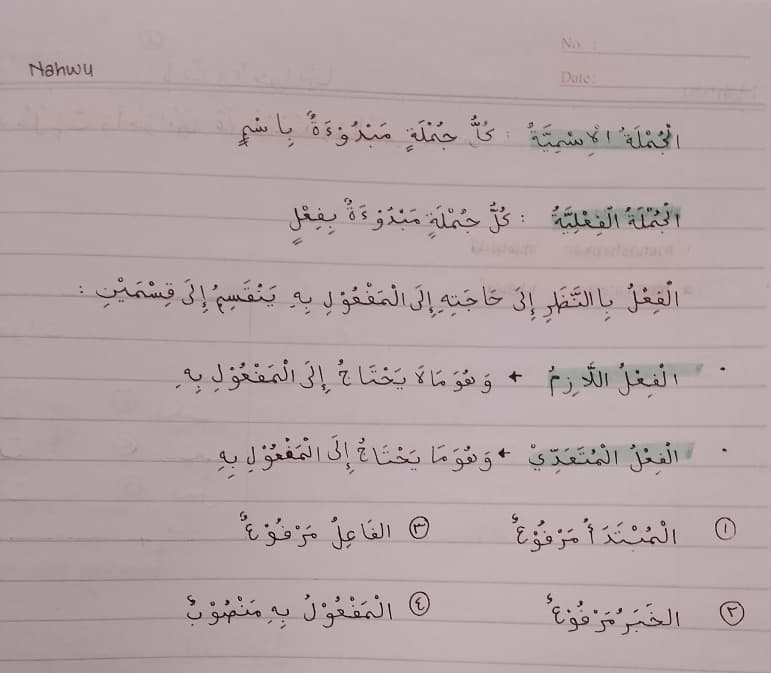 No. :
Date:
Nahwu
الْجُمْلَةُ الْإِسْمِيَّةُ : كُلُّ جُمْلَةٍ مَبْدُوْءَةٌ بِاسْمٍ
الْجُمْلَةُ الْفِعْلِيَّةُ : كُلُّ جُمْلَةٍ مَبْدُوْءَةٌ بِفِعْلٍ
الْفِعْلُ بِالنَّظَرِ إِلَى حَاجَتِهِ إِلَى الْمَفْعُوْلِ بِهِ يَنْقَسِمُ إِلَى قِسْمَيْنِ :
• الْفِعْلُ اللَّازِمُ ← وَهُوَ مَا لَا يَحْتَاجُ إِلَى الْمَفْعُوْلِ بِهِ
• الْفِعْلُ الْمُتَعَدِّيْ ← وَهُوَ مَا يَحْتَاجُ إِلَى الْمَفْعُوْلِ بِهِ
١ الْمُبْتَدَأُ مَرْفُوْعٌ ٣ الفَاعِلُ مَرْفُوْعٌ
٢ الخَبَرُ مَرْفُوْعٌ ٤ الْمَفْعُوْلُ بِهِ مَنْصُوْبٌ